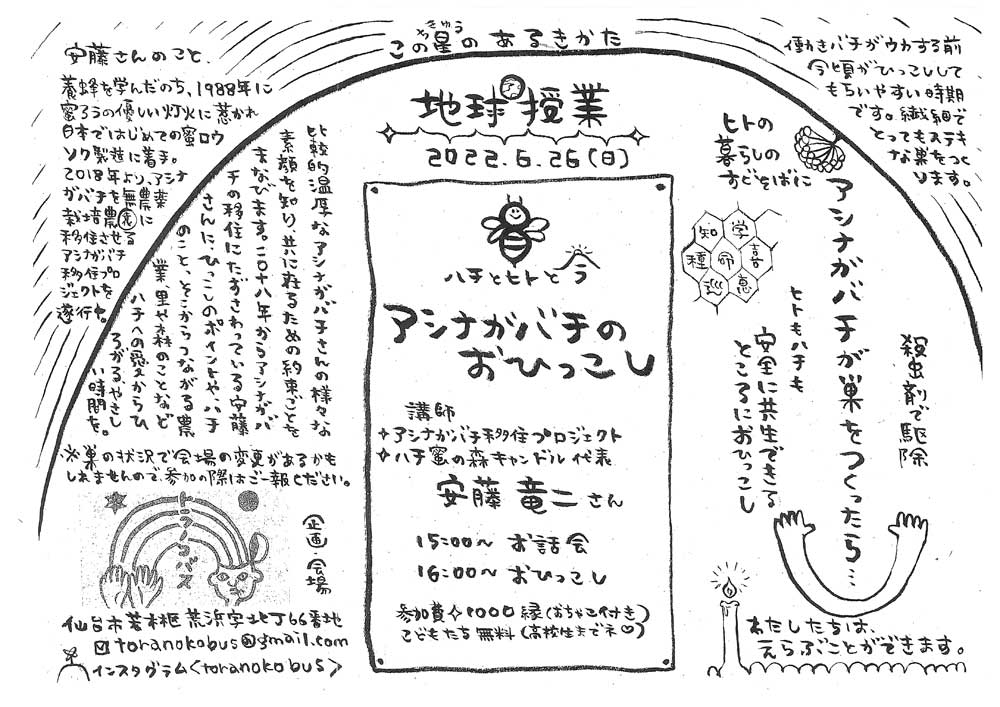 この星のあるきかた
きゅう
地球授業
2022.6.26(日)
ハチとヒトと
アシナガバチの
おひっこし
講師
✧アシナガバチ移住プロジェクト
✧ハチ蜜の森キャンドル代表
安藤竜二さん
15:00〜 お話会
16:00〜 おひっこし
参加費✧1000縁(おちゃこ付き)
こどもたち無料(高校生までネ♡)
働きバチがウカする前
今頃がひっこしして
もらいやすい時期
です。繊細で
とってもステキ
な巣をつく
ります。
ヒトの
暮らしの
すぐそばに
アシナガバチが巣をつくったら…
殺虫剤で駆除
ヒトもハチも
安全に共生できる
ところにおひっこし
知
学
種
命
喜
巡
恵
わたしたちは、
えらぶことができます。
安藤さんのこと、
養蜂を学んだのち、1988年に
蜜ろうの優しい灯火に惹かれ
日本ではじめての蜜ロウ
ソク製造に着手。
2018年より、アシナ
ガバチを無農薬
栽培農家に
移住させる
アシナガバチ
移住プロ
ジェクトを
遂行中。
比較的温厚なアシナガバチさんの様々な
素顔を知り、共に在るための約束ごとを
まなびます。二〇十八年からアシナガバ
チの移住にたずさわっている安藤
さんに、ひっこしのポイントや、ハチ
のこと、そこからつながる農
業、里や森のことなど
ハチへの愛からひ
ろがる、やさし
い時間を。
※巣の状況で会場の変更があるかも
しれませんので、参加の際はご一報ください。
トラノコバス
企画・会場
仙台市若林区荒浜字北丁66番地
toranokobus@gmail.com
インスタグラム<toranokobus>